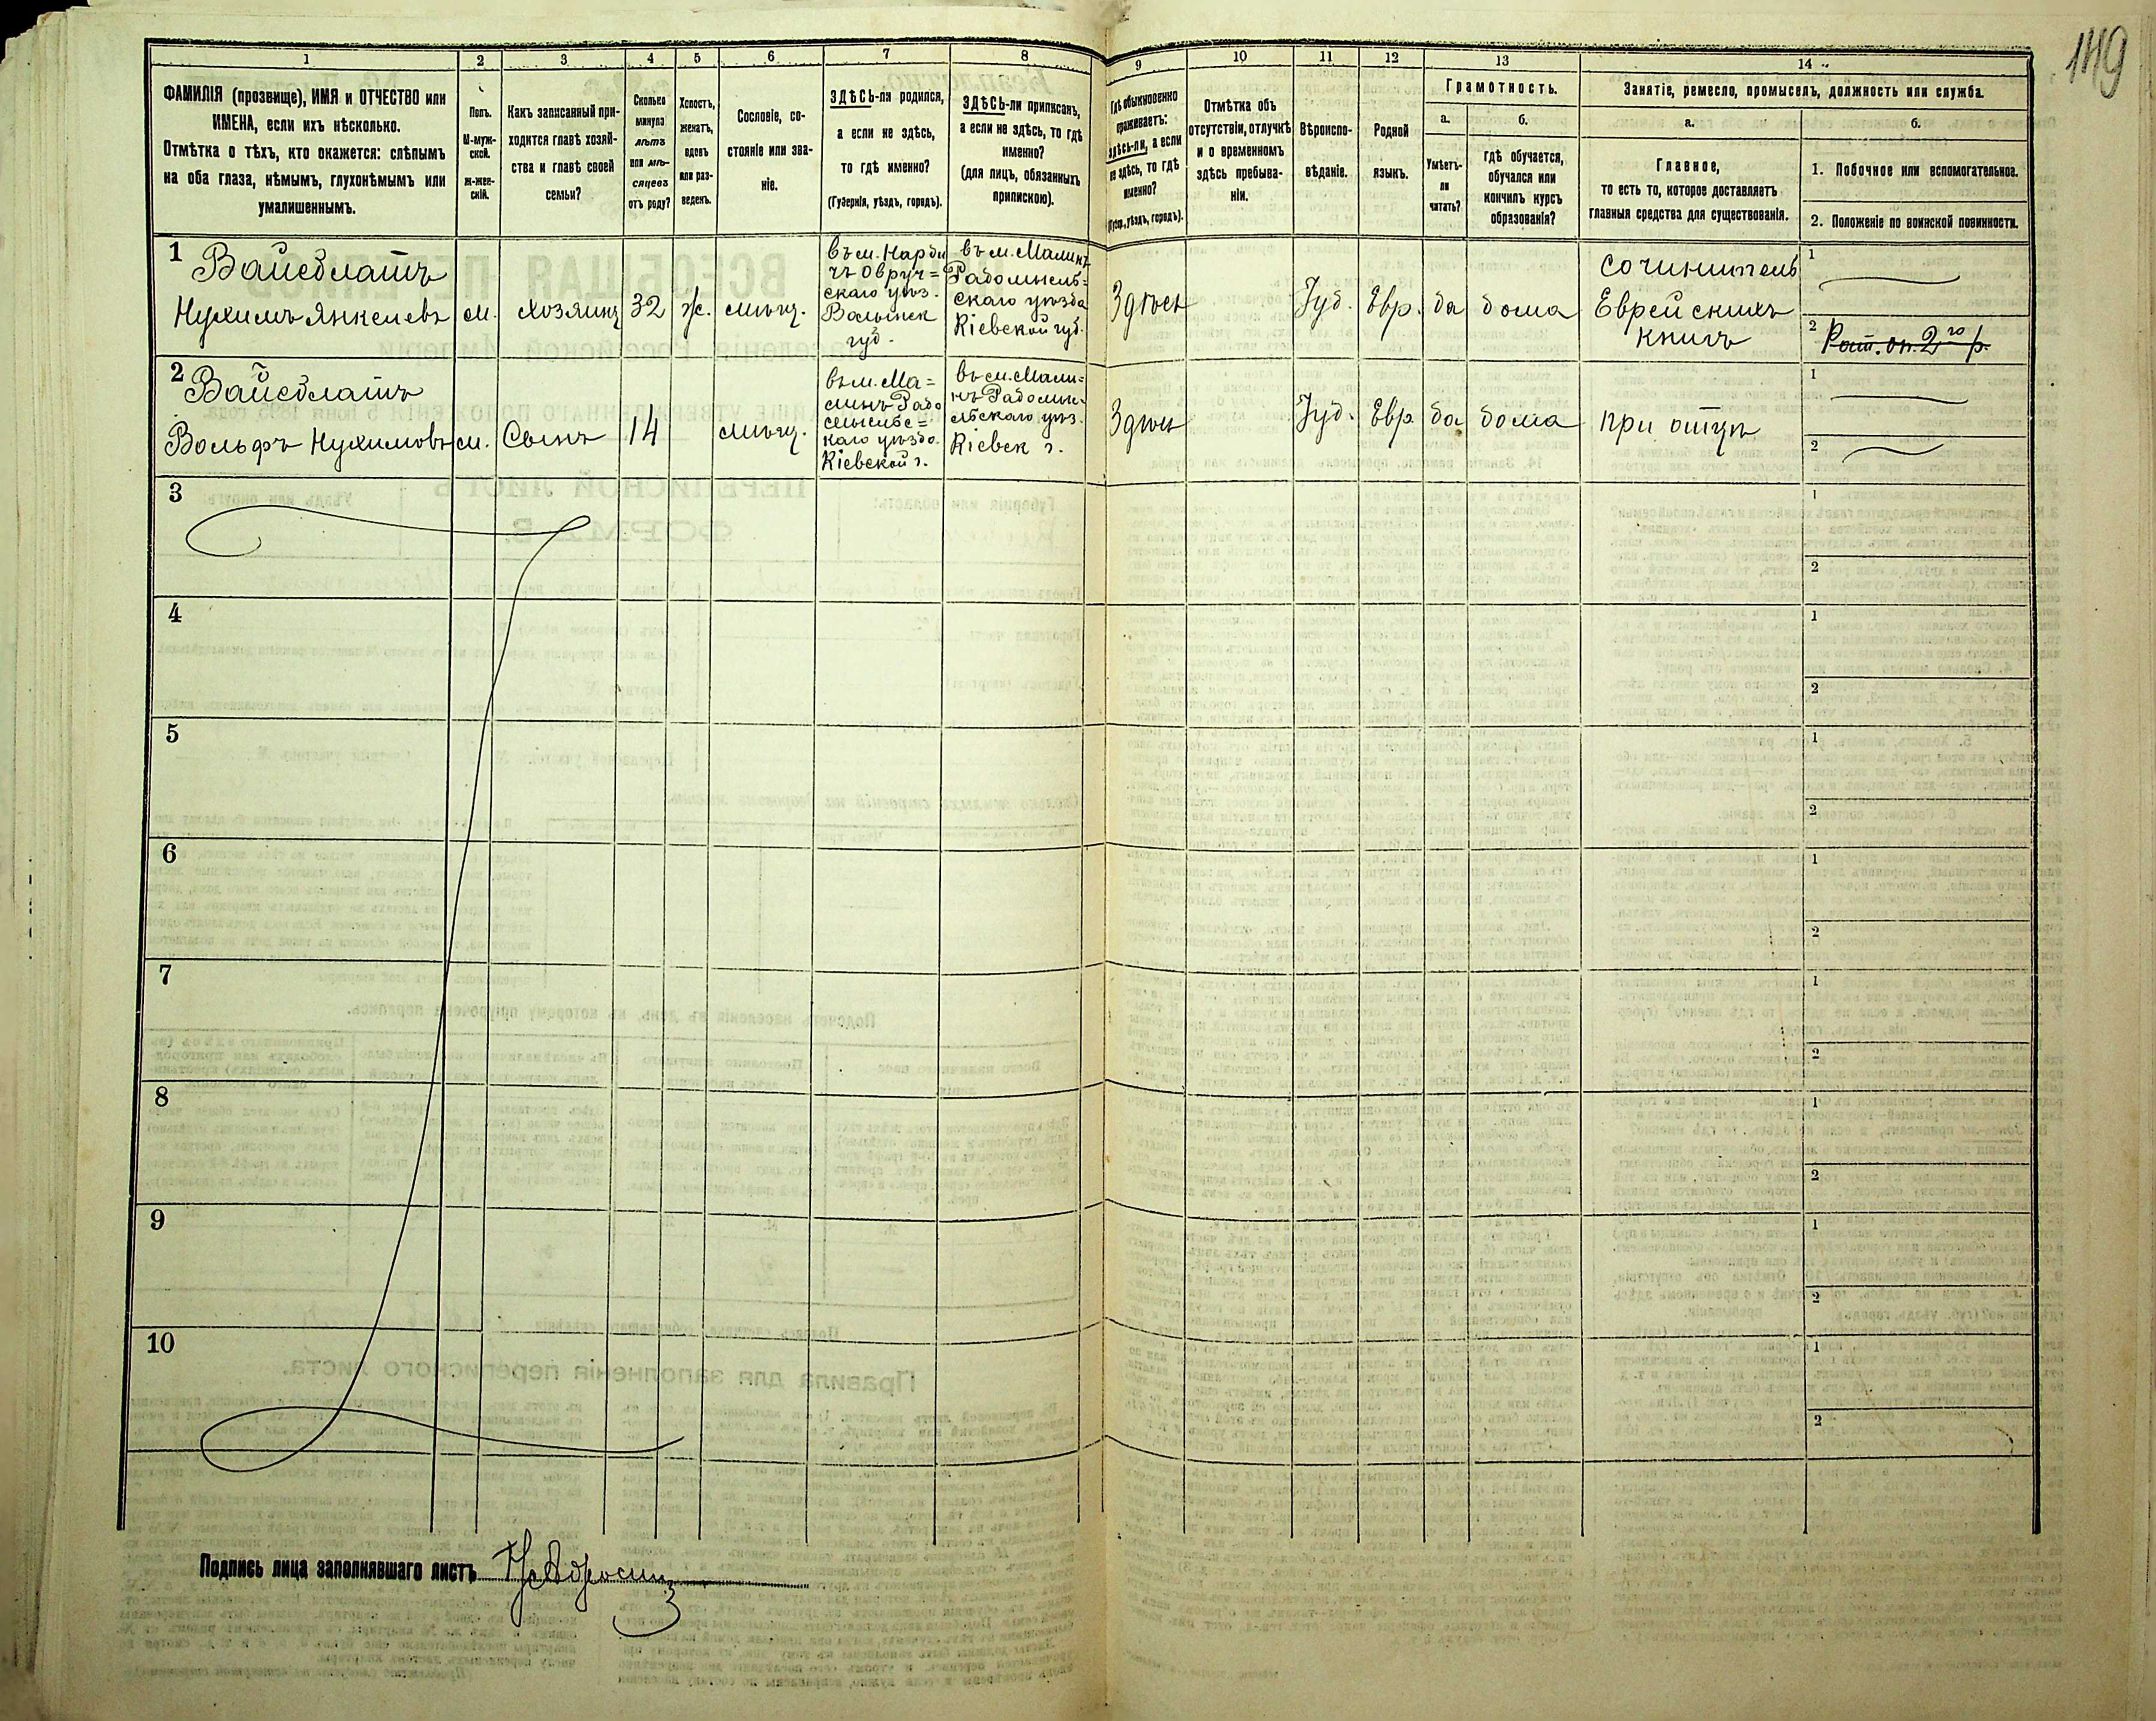 149
1
2
3
4
5
6
7
8
9
10
11
12
13
14
ФАМИЛІЯ (прозвище), ИМЯ и ОТЧЕСТВО или
ИМЕНА, если ихъ нѣсколько.
Отмѣтка о тѣхъ, кто окажется: слѣпымъ
на оба глаза, нѣмымъ, глухонѣмымъ или
умалишеннымъ.
Полъ.
М-муж-
ской.
Ж-жен-
скій.
Какъ записанный при-
ходится главѣ хозяй-
ства и главѣ своей
семьи?
Сколько
минуло
лѣтъ
или мѣ-
сяцевъ
отъ роду?
Холостъ,
женатъ,
вдовъ
или раз-
веденъ.
Сословіе, со-
стояніе или зва-
ніе.
ЗДѢСЬ-ли родился,
а если не здѣсь,
то гдѣ именно?
(Губернія, уѣздъ, городъ).
ЗДѢСЬ-ли приписанъ,
а если не здѣсь, то гдѣ
именно?
(для лицъ, обязанныхъ
припискою).
Гдѣ обыкновенно
проживаетъ:
здѣсь-ли, а если
не здѣсь, то гдѣ
именно?
(Губ., уѣздъ, городъ).
Отмѣтка объ
отсутствіи, отлучкѣ
и о временномъ
здѣсь пребыва-
ніи.
Вѣроиспо-
вѣданіе.
Родной
языкъ.
Грамотность.
а.
Умѣетъ-
ли
читать?
б.
гдѣ обучается,
обучался или
кончилъ курсъ
образованія?
Занятіе, ремесло, промыселъ, должность или служба.
а.
Главное,
то есть то, которое доставляетъ
главныя средства для существованія.
б.
1. Побочное или вспомогательное.
2. Положеніе по воинской повинности.
1
Вайсблатъ
Нухимъ Янкелевъ
м.
хозяинъ
32
ж.
мѣщ.
въ м. Народи
чъ Овруч=
скаго уѣз.
Волынск
губ.
въ м. Малинъ
Радомысль=
скаго уѣзда
Кіевской губ.
Здѣсь
Іуд.
Евр.
да
дома
Сочинитель
Еврейскихъ
книгъ
1
2
Рат. оп. 2го р.
2
Вайсблатъ
Вольфъ Нухимовъ
м.
Сынъ
14
мѣщ.
въ м. Ма=
линъ Радо
мысльс=
каго уѣзда
Кіевской г.
въ м. Мали-
нъ Радомы-
льскаго уѣз.
Кіевск г.
Здѣсь
Іуд.
Евр.
да
дома
при отцѣ
1
2
3
1
2
4
1
2
5
1
2
6
1
2
7
1
2
8
1
2
9
1
2
10
1
2
Подпись лица заполнявшаго листъ